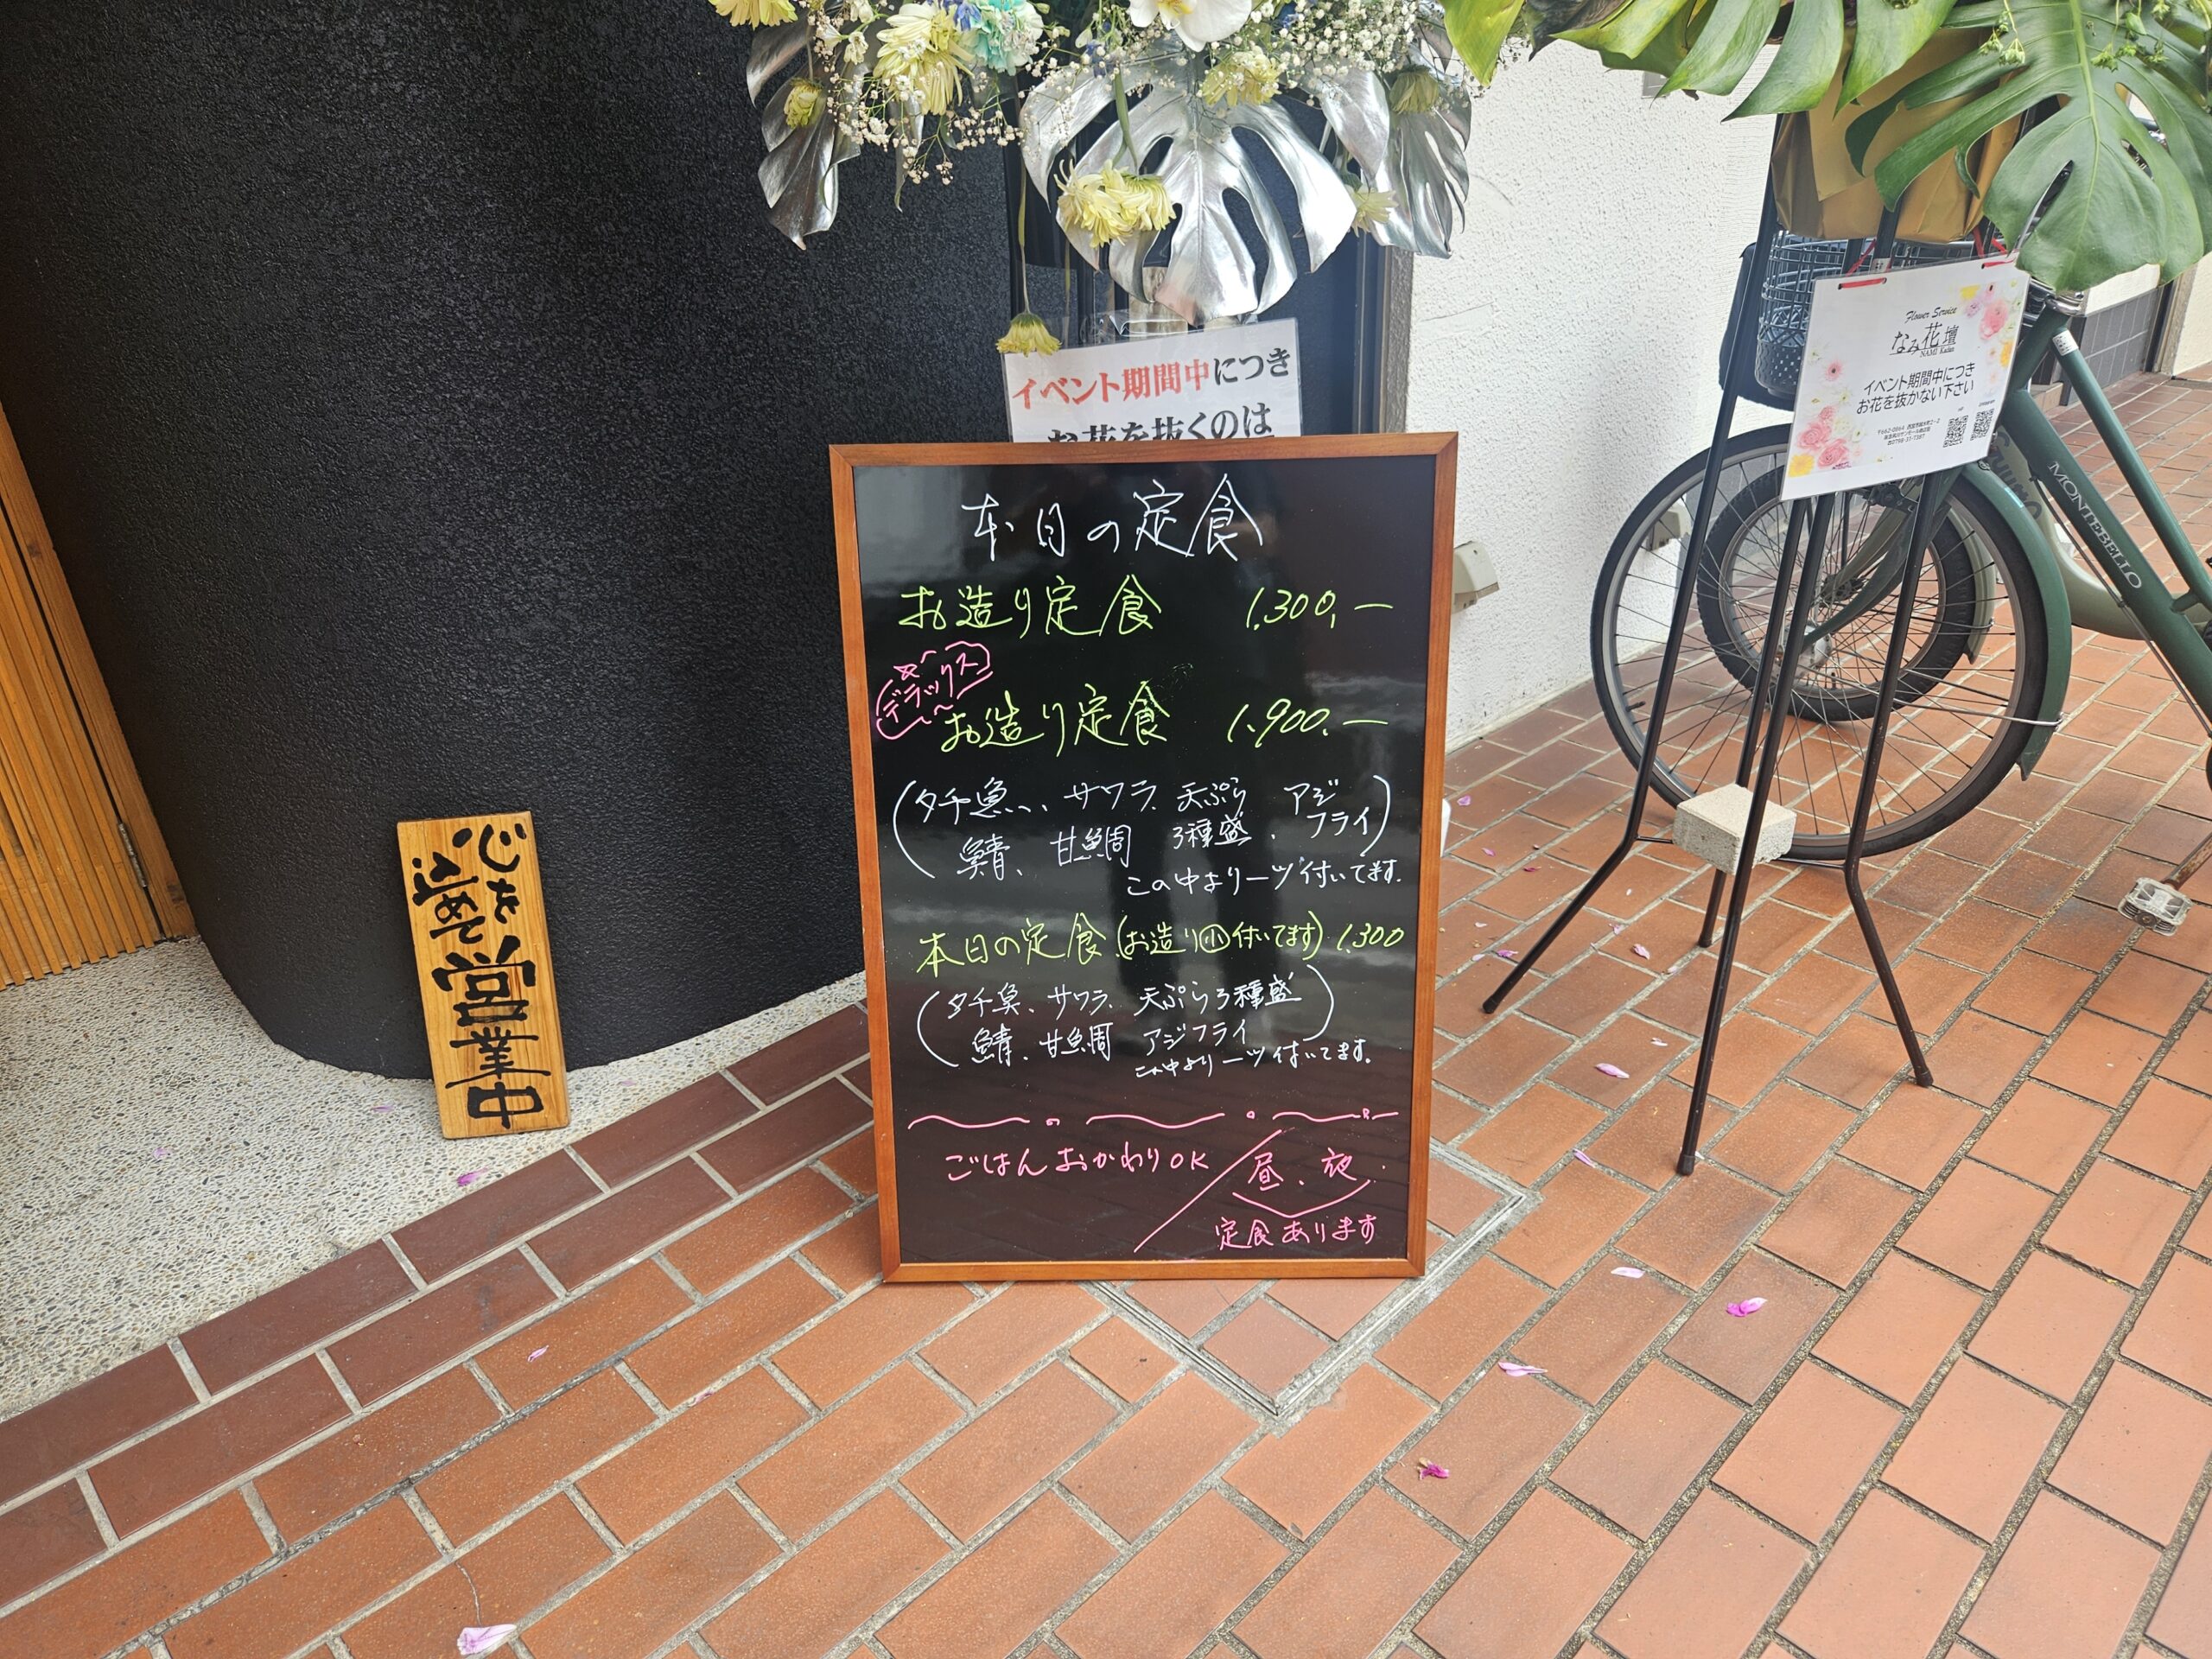 イベント期間中につき
お花を抜くのは
Flower Service
なみ花壇
NAMI Kadan
イベント期間中につき
お花を抜かない下さい
MONTEBELLO
本日の定食
お造り定食 1.300,ー
デラックス
お造り定食 1.900.ー
(タチ魚、サワラ、天ぷら アジ
鯖、甘鯛 3種盛、フライ)
この中より一ツ付いてます.
本日の定食(お造り小付いてます)1.300
(タチ魚、サワラ、天ぷら3種盛
鯖、甘鯛 アジフライ)
この中より一ツ付いてます.
ごはんおかわりOK / 昼、夜
定食あります
心を
込めて
営業中